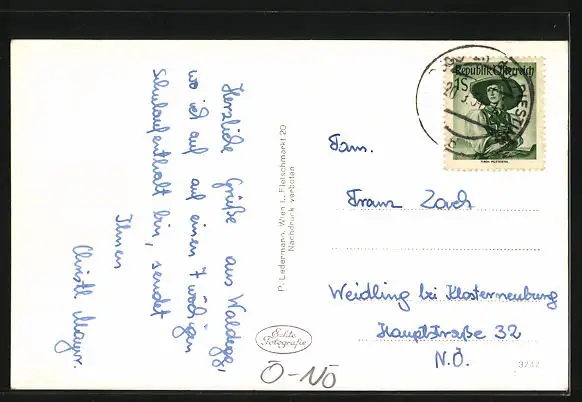 Herzliche Grüße aus Waldegg,
wo ich auf auf einen 7 wöchigen
Schulaufenthalt bin, sendet
Ihnen
Christl Mayr.
P. Ledermann, Wien I., Fleischmarkt 20
Nachdruck verboten
Republik Österreich
1S
Fam.
Franz Zach
Weidling bei Klosterneuburg
Hauptstraße 32
N.Ö.
Echte
Fotografie
Ö-NÖ
3747